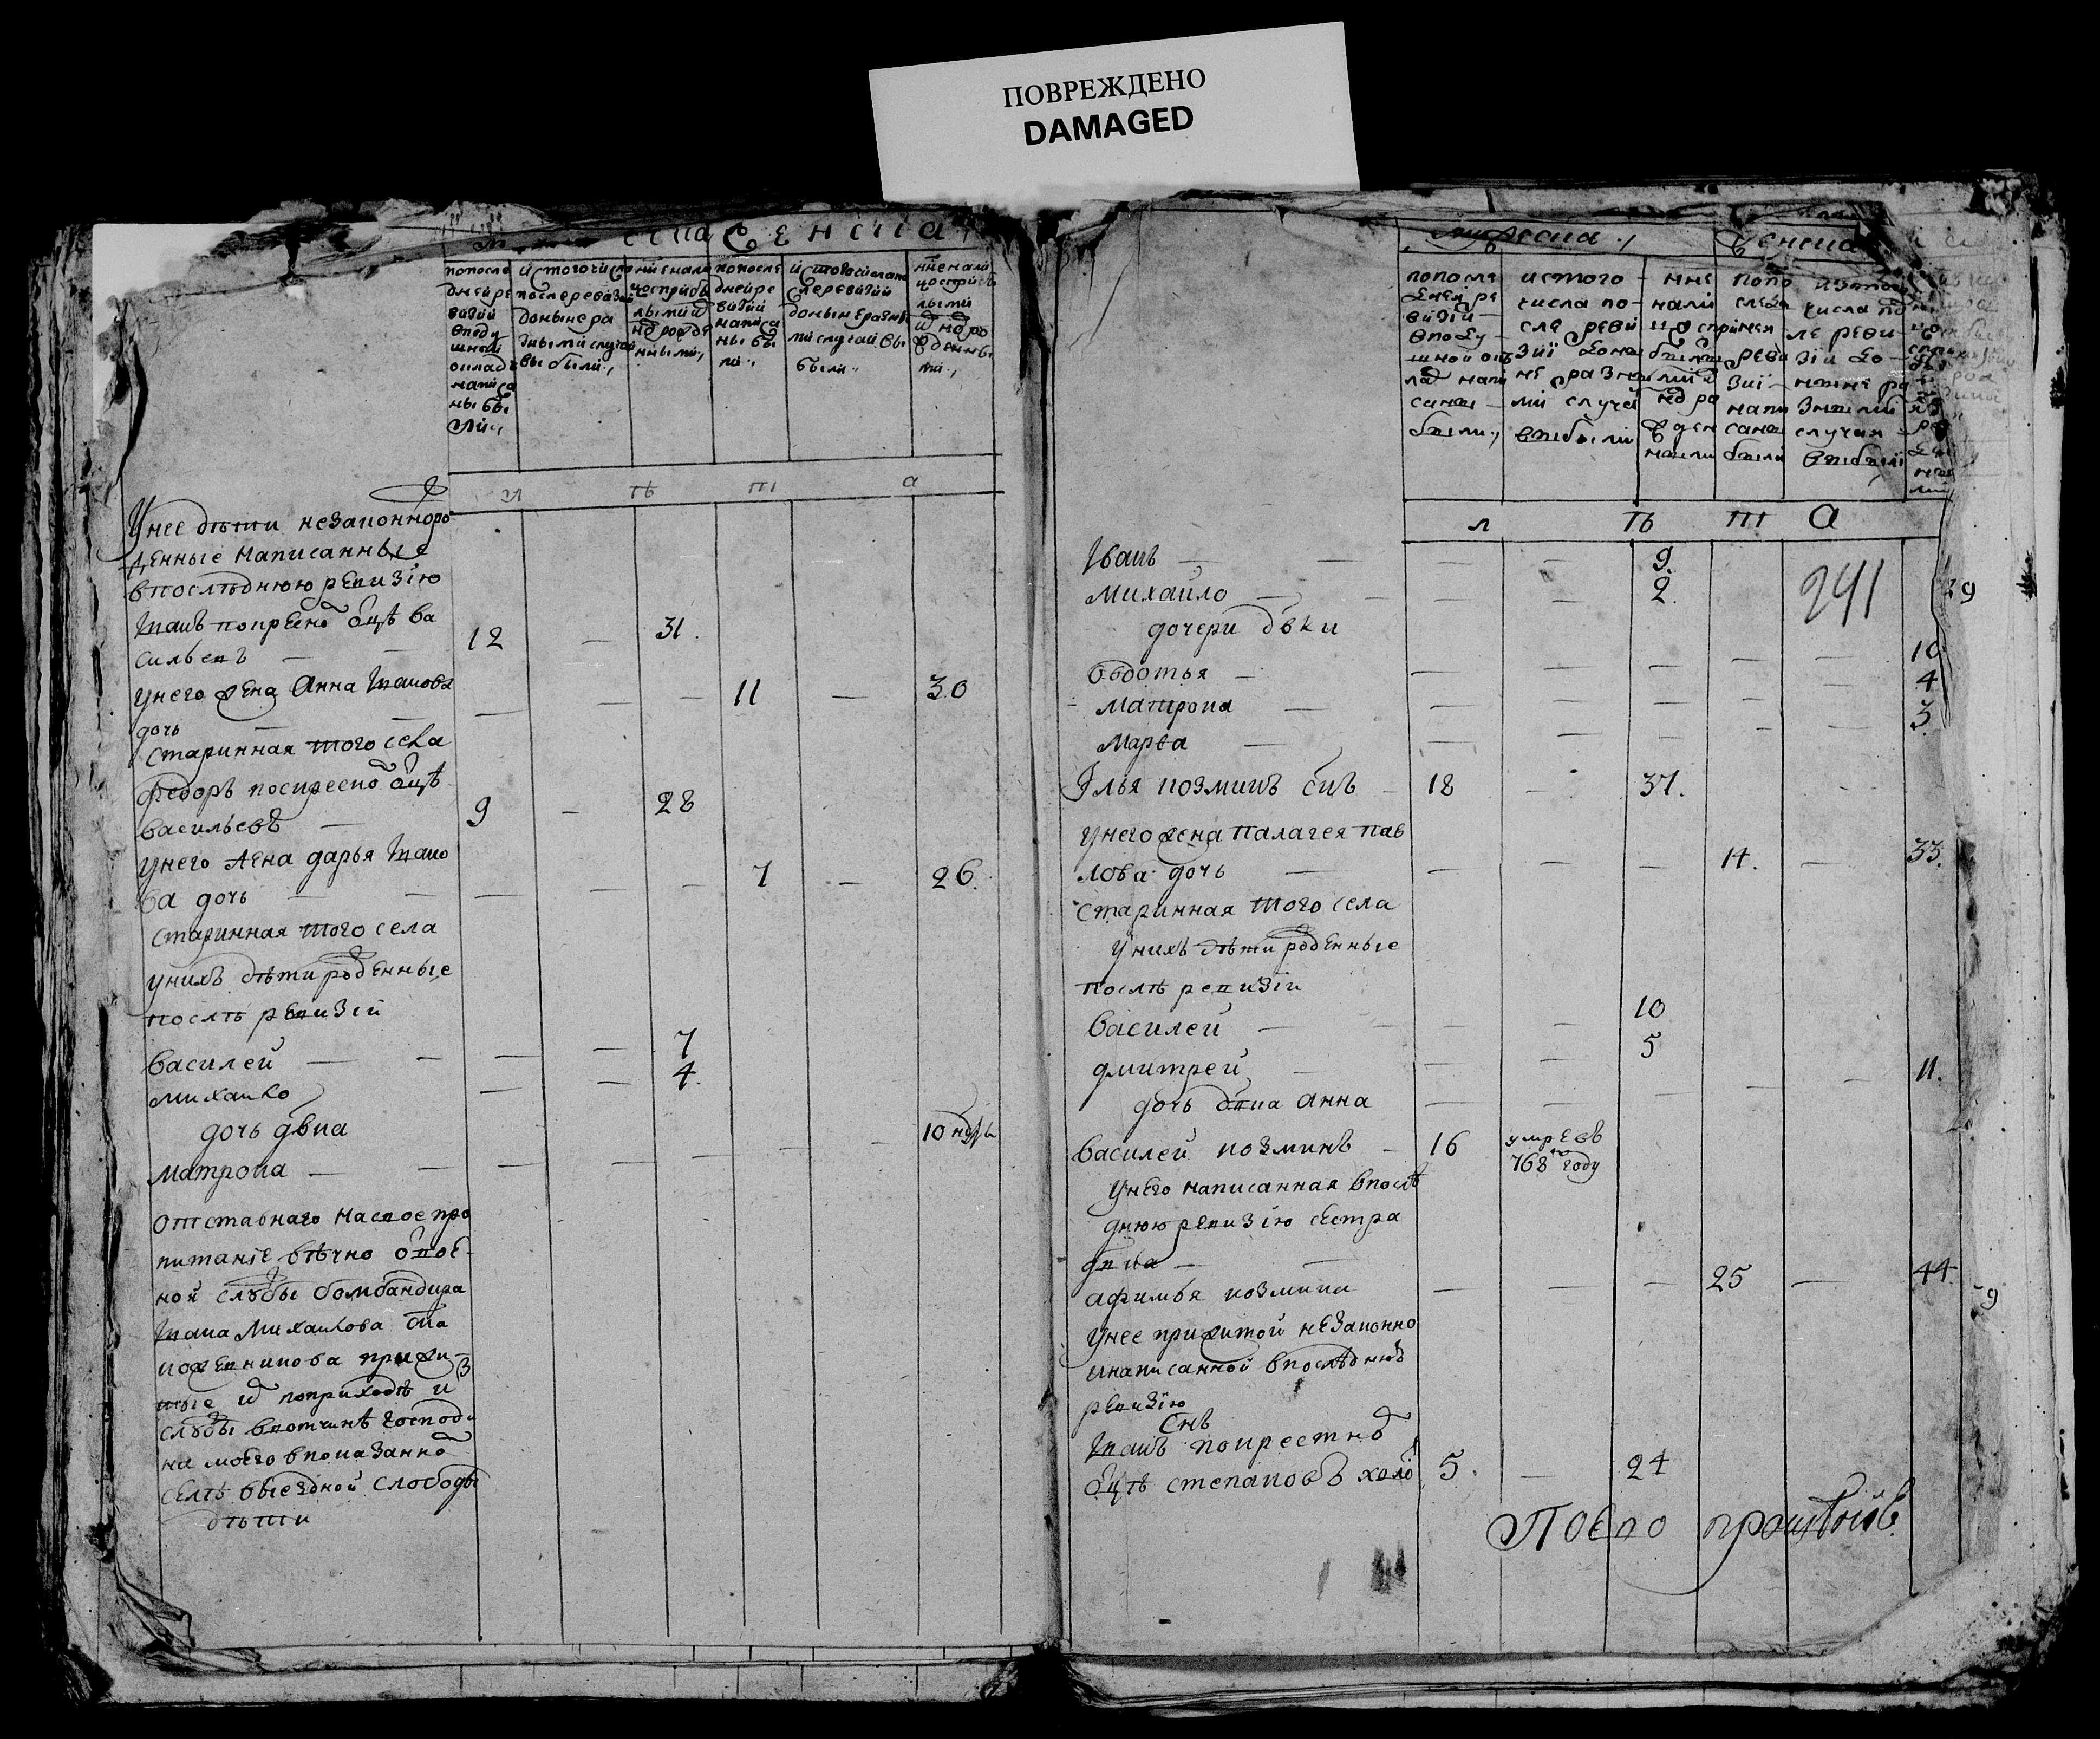 ПОВРЕЖДЕНО
DAMAGED
женска
попосле дней ре визии вподушной оклад написаны были
истого числа после ревизии доныне разными случаи выбыли
ныне налицо с прибылыми и рожденными
попосле дней ре визии написаны были
истого числа после ревизии доныне разными случаи выбыли
ныне налицо с прибылыми и рожденными
л ѣ т а
Унее дѣти незаконнорож
денные написанные
впослѣднюю ревизію
Иванъ покресно отцѣ ва
сильевъ 12 — 31.
унего жена Анна Иванова
дочь — — — 11 — 30
старинная того села
Федоръ покресно отцѣ
васильевъ 9 — 28
унего жена дарья Ивано
ва дочь — — — 7 — 26.
старинная того села
унихъ дѣти рожденные
послѣ ревизіи
Василей — — 7
михайло — — 4.
дочь дѣвка
матрона — — — — — 10 недѣль
отставнаго насвое про
питаніе вѣчно отвое
ной службы бомбандира
Ивана Михайлова сна
кожевникова прижи
тые и поприходѣ из
службы вотчинѣ господи
на моего впоказанно
селѣ выездной слободы
дѣти
мужеска женска
пополе дней ре визіи вподушной оклад написаны были
истого числа после ревизіи доны не разными случаи выбыли
л ѣ т а
Иванъ — — 9.
Михайло — — 2.
241
29
дочери дѣвки
Овдотья — — — — — 10
Матрона — — — — — 4
Марѳа — — — — — 3.
Илья козминъ снъ 18 — 37.
унего жена палагея пав
лова дочь — — — 14. — 33.
старинная того села
унихъ дѣти рожденные
послѣ ревизіи
Василей — — 10
дмитрей — — 5
дочь дѣвка анна — — — — — 11.
Василей козминъ 16 умре въ
768м году
унего написанная впослѣ
днюю ревизію сестра
дѣвка
афимья козмина — — — 25 — 44.
унее прижитой незаконно
инаписанной впослѣднюю
ревизію
снъ
Иванъ покрестно
отцѣ степановъ холо 5. — 24